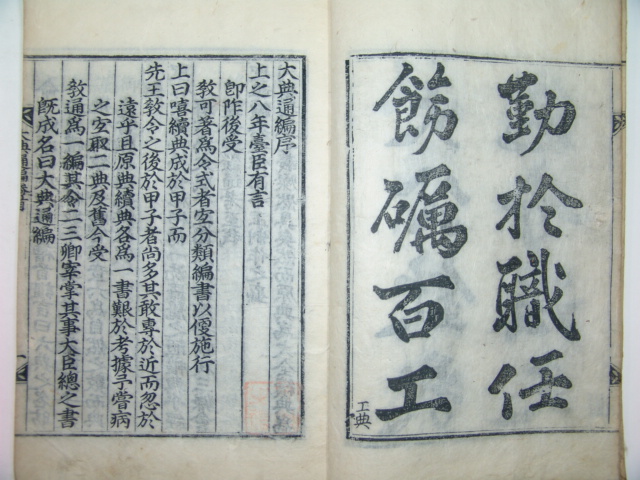 勤於職任
飭礪百工
工典
大典通編序
上之八年臺臣有言
卽阼後受
敎可著爲令式者宜分類編書以便施行
上曰嘻續典成於甲子而
先王敎令之後於甲子者尚多其敢專於近而忽於
遠乎且原典續典各爲一書艱於考據予嘗病
之宜取二典及舊今受
敎通爲一編其令二三卿宰掌其事大臣總之書
旣成名曰大典通編